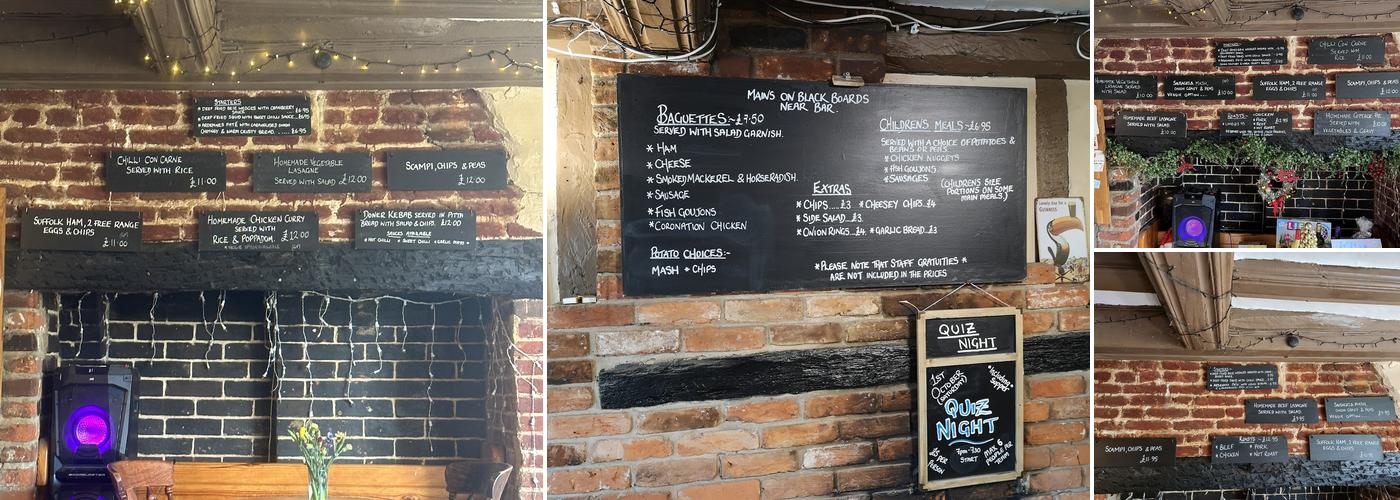 STARTERS
* DEEP FRIED BRIE WEDGES WITH CRANBERRY
SAUCE £6.95
* DEEP FRIED SQUID WITH SWEET CHILLI SAUCE £6.95
CHUTNEY & WARM CRUSTY BREAD ..... £6.95
CHILLI CON CARNE
SERVED WITH RICE
£11.00
HOMEMADE VEGETABLE
LASAGNE
SERVED WITH SALAD £12.00
SCAMPI, CHIPS & PEAS
£12.00
SUFFOLK HAM, 2 FREE RANGE
EGGS & CHIPS
£11.00
HOMEMADE CHICKEN CURRY
SERVED WITH
RICE & POPPADOM. £12.00
DONER KEBAB SERVED IN PITTA
BREAD WITH SALAD & CHIPS. £12.00
SAUCES AVAILABLE
* HOT CHILLI * SWEET CHILLI * GARLIC MAYO
MAINS ON BLACK BOARDS
NEAR BAR.
BAGUETTES:- £7.50
SERVED WITH SALAD GARNISH.
* HAM
* CHEESE
* SMOKED MACKEREL & HORSERADISH.
* SAUSAGE
* FISH GOUJONS
* CORONATION CHICKEN
POTATO CHOICES:-
MASH * CHIPS
CHILDRENS MEALS - £6.95
SERVED WITH A CHOICE OF POTATOES &
BEANS OR PEAS.
* CHICKEN NUGGETS
* FISH GOUJONS
* SAUSAGES
(CHILDRENS SIZE
PORTIONS ON SOME
MAIN MEALS.)
EXTRAS
* CHIPS.....£3 * CHEESEY CHIPS.£4
* SIDE SALAD..£3.
* ONION RINGS..£4. * GARLIC BREAD..£3
* PLEASE NOTE THAT STAFF GRATUITIES *
ARE NOT INCLUDED IN THE PRICES
GUINNESS
QUIZ
NIGHT
1ST
OCTOBER
(SATURDAY)
*Including
Supper*
QUIZ
NIGHT
£5 PER
PERSON
7pm-7.30
START
MAX 6
PEOPLE PER
TEAM
CHILLI CON CARNE
SERVED WITH
RICE £11.00
HOMEMADE VEGETABLE
LASAGNE
SERVED WITH SALAD
£12.00
SAUSAGES, MASH,
ONION GRAVY & PEAS
VEGGIE OPTION
SUFFOLK HAM, 2 FREE RANGE
EGGS & CHIPS
£11.00
SCAMPI, CHIPS & PEAS
£12.00
SERVED WITH SALAD
ROASTS
HOMEMADE COTTAGE PIE
SERVED WITH
VEGETABLES & GRAVY
STARTERS
HOMEMADE BEEF LASAGNE
SERVED WITH SALAD
SAUSAGES, MASH,
ONION GRAVY & PEAS
VEGGIE OPTION
SCAMPI, CHIPS & PEAS
£11.95
ROASTS :- £12.95
* BEEF * PORK
* CHICKEN * NUT ROAST
SUFFOLK HAM, 2 FREE RANGE
EGGS & CHIPS